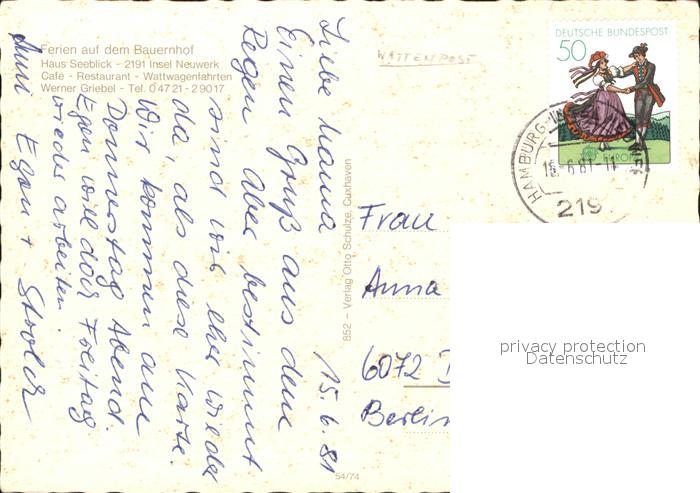 Ferien auf dem Bauernhof
Haus Seeblick - 2191 Insel Neuwerk
Café - Restaurant - Wattwagenfahrten
Werner Griebel - Tel. 0 47 21 - 2 90 17
WATTENPOST
DEUTSCHE BUNDESPOST
50
EUROPA
HAMBURG-INSEL NEUWERK
15.-6.81-11
219
15.6.81
Liebe Mama
Einen Gruß aus dem
Regen. Aber bestimmt
sind wir eher wieder
da, als diese Karte.
Wir kommen am
Donnerstag Abend.
Egon will doch Freitag
wieder arbeiten.
Egon +
852 - Verlag Otto Schulze, Cuxhaven
54/74
Frau
Anna
6072 D
Berlin
privacy protection
Datenschutz